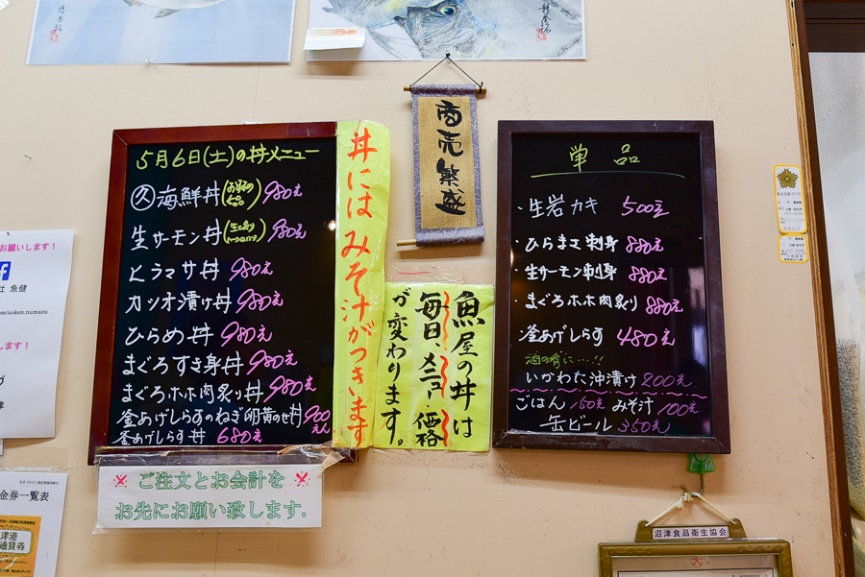 5月6日(土)の丼メニュー
久 海鮮丼 980え
生サーモン丼 980え
ヒラマサ丼 980え
カツオ漬け丼 980え
ひらめ丼 980え
まぐろすき身丼 980え
まぐろホホ肉炙り丼 980え
釜あげしらすのねぎ卵黄のせ丼 900えん
釜あげしらす丼 680え
丼にはみそ汁がつきます
ご注文とお会計を
お先にお願い致します.
商売繁盛
魚屋の丼は
毎日、メニュー・価格
が変わります。
単品
・生岩カキ 500え
・ひらまさ刺身 880え
・生サーモン刺身 880え
・まぐろホホ肉炙り 880え
釜あげしらす 480え
酒の肴に…!!
いかわた沖漬け 200え
ごはん 150え みそ汁 100え
缶ビール 350え
沼津食品衛生協会
お願いします!
魚健
します!
金券一覧表